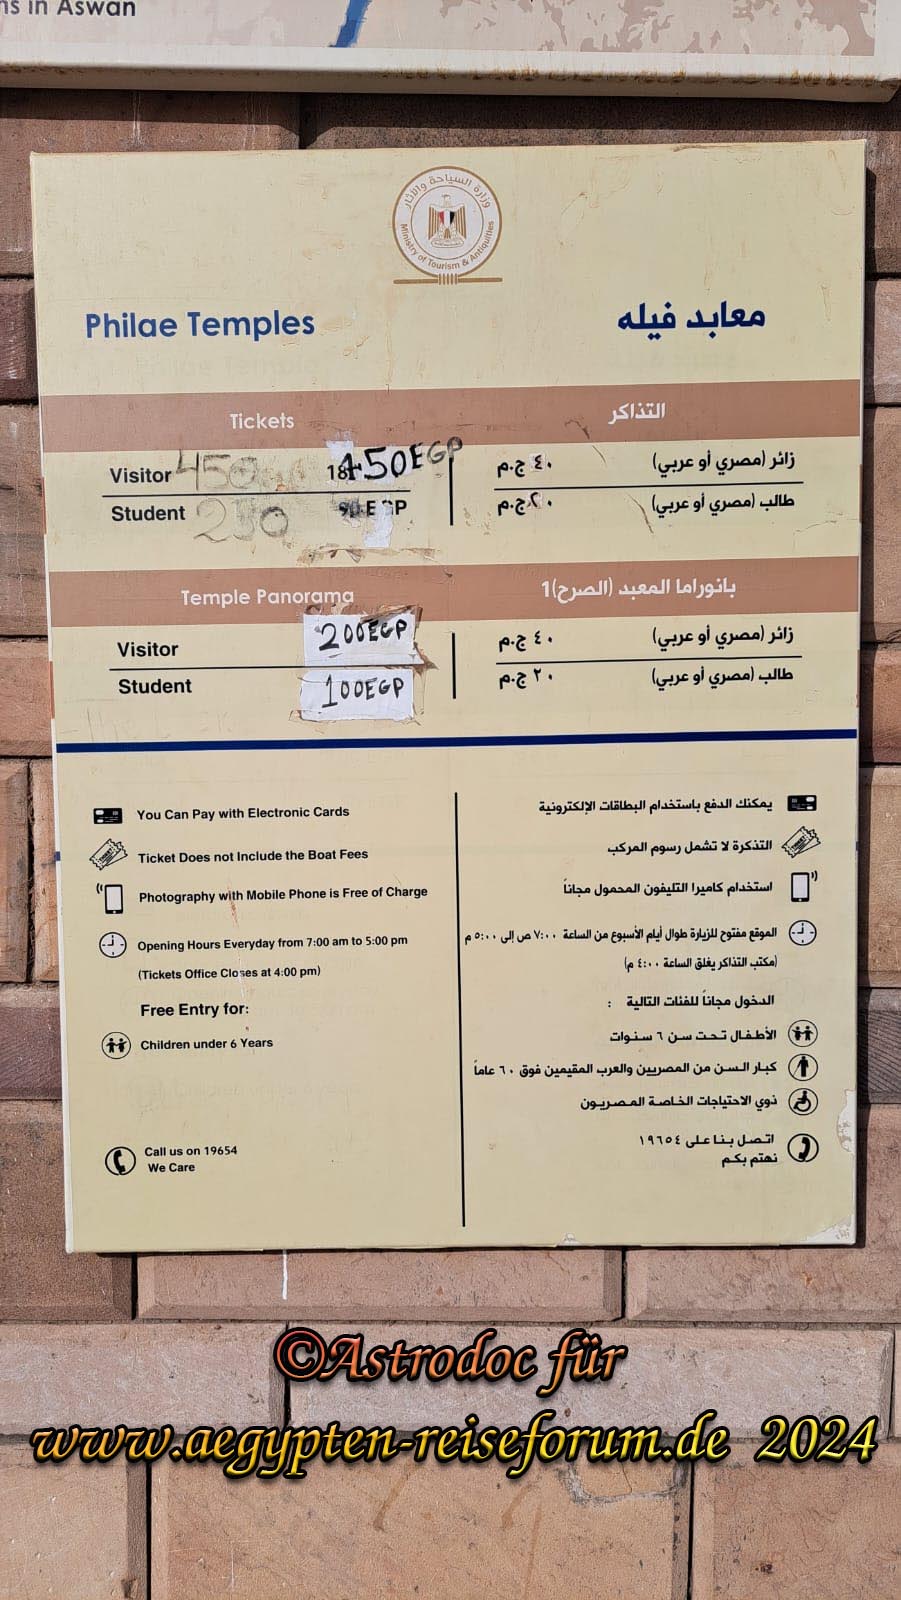 ns in Aswan
وزارة السياحة والآثار
Ministry of Tourism & Antiquities
Philae Temples
معابد فيله
Tickets
التذاكر
Visitor 450 18 450 EGP
زائر (مصري أو عربي) ٤٠ ج.م
Student 230 90 EGP
طالب (مصري أو عربي) ٢٠ ج.م
Temple Panorama
بانوراما المعبد (الصرح)1
Visitor 200EGP
زائر (مصري أو عربي) ٤٠ ج.م
Student 100EGP
طالب (مصري أو عربي) ٢٠ ج.م
You Can Pay with Electronic Cards
Ticket Does not Include the Boat Fees
Photography with Mobile Phone is Free of Charge
Opening Hours Everyday from 7:00 am to 5:00 pm
(Tickets Office Closes at 4:00 pm)
Free Entry for:
Children under 6 Years
Call us on 19654
We Care
يمكنك الدفع باستخدام البطاقات الإلكترونية
التذكرة لا تشمل رسوم المركب
استخدام كاميرا التليفون المحمول مجاناً
الموقع مفتوح للزيارة طوال أيام الأسبوع من الساعة ٧:٠٠ ص إلى ٥:٠٠ م
(مكتب التذاكر يغلق الساعة ٤:٠٠ م)
الدخول مجاناً للفئات التالية :
الأطفال تحت سن ٦ سنوات
كبار السن من المصريين والعرب المقيمين فوق ٦٠ عاماً
ذوي الاحتياجات الخاصة المصريون
اتصل بنا على ١٩٦٥٤
نهتم بكم
©Astrodoc für
www.aegypten-reiseforum.de 2024